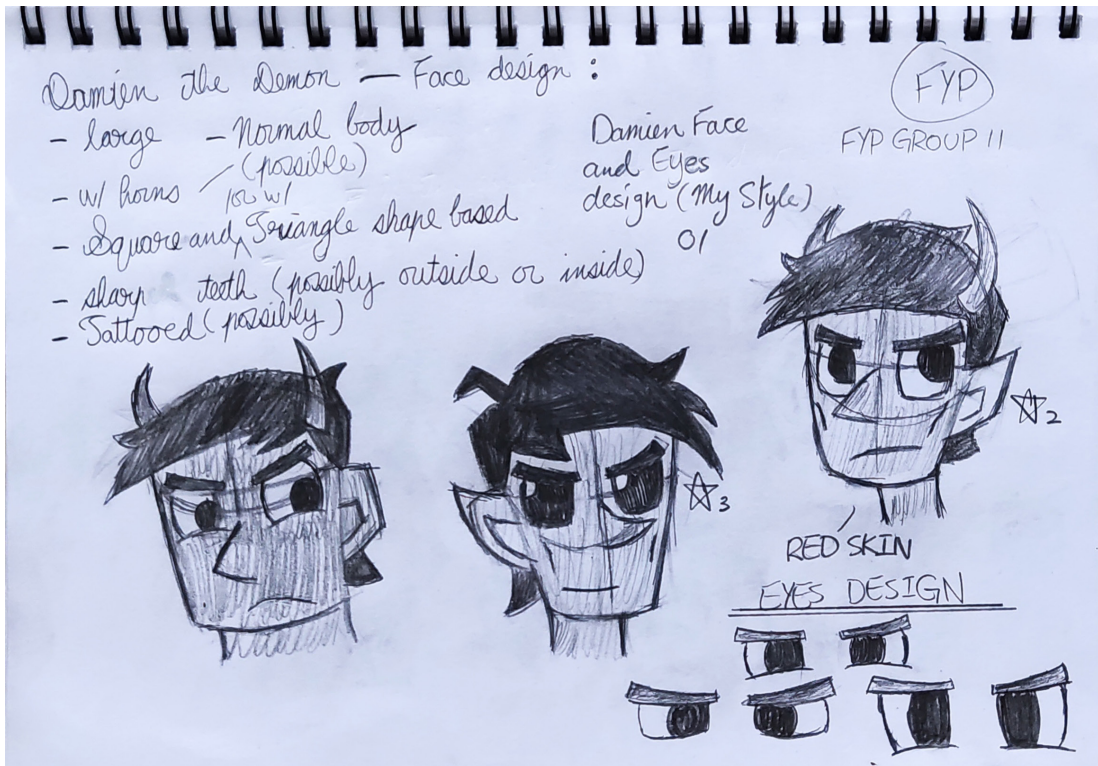 Damien the Demon — Face design :
FYP
FYP GROUP 11
- large - Normal body
(possible)
- w/ horns
for w/
- Square and Triangle shape based
- sharp teeth (possibly outside or inside)
- Tattooed (possibly)
Damien Face
and Eyes
design (My Style)
01
2
3
RED SKIN
EYES DESIGN